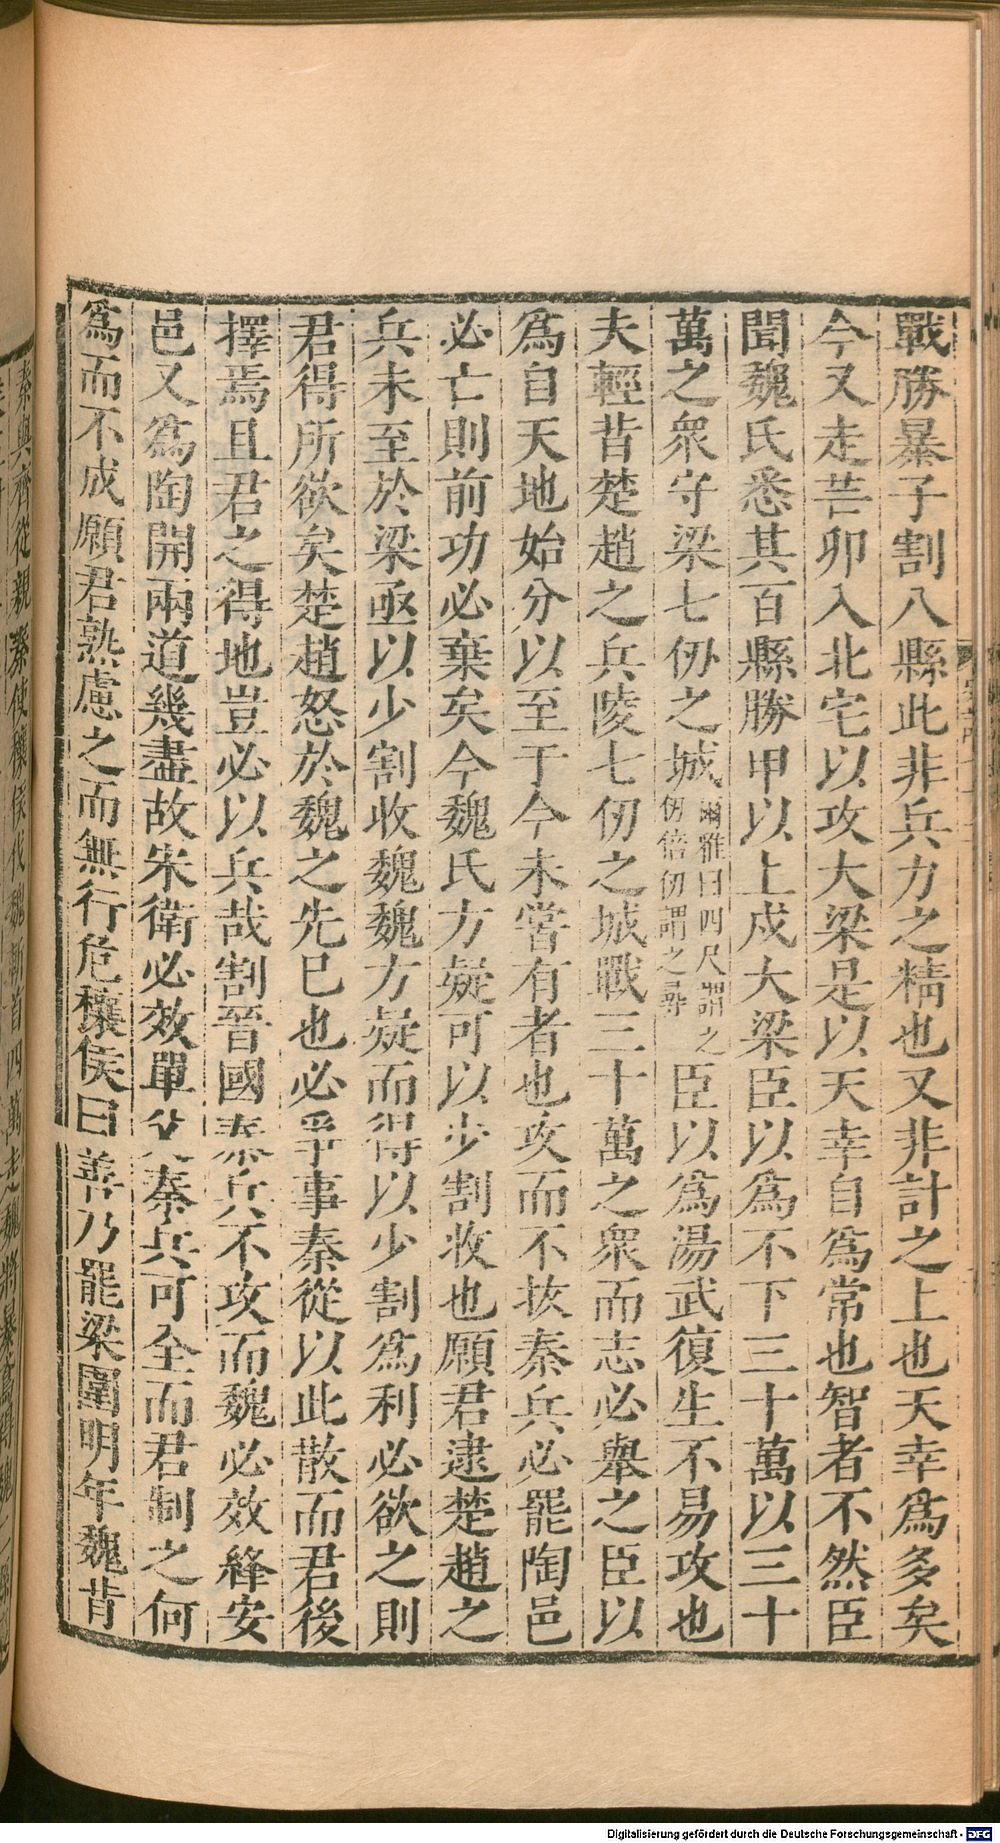 戰勝暴子割八縣此非兵力之精也又非計之上也天幸爲多矣
今又走芒卯入北宅以攻大梁是以天幸自爲常也智者不然臣
聞魏氏悉其百縣勝甲以上戍大梁臣以爲不下三十萬以三十
萬之衆守梁七仞之城爾雅曰四尺謂之仞倍仞謂之尋臣以爲湯武復生不易攻也
夫輕背楚趙之兵陵七仞之城戰三十萬之衆而志必舉之臣以
爲自天地始分以至于今未嘗有者也攻而不拔秦兵必罷陶邑
必亡則前功必棄矣今魏氏方疑可以少割收也願君逮楚趙之
兵未至於梁亟以少割收魏魏方疑而得以少割爲利必欲之則
君得所欲矣楚趙怒於魏之先已也必爭事秦從以此散而君後
擇焉且君之得地豈必以兵哉割晉國秦兵不攻而魏必效絳安
邑又爲陶開兩道幾盡故宋衛必效單父秦兵可全而君制之何
爲而不成願君熟慮之而無行危穰侯曰善乃罷梁圍明年魏背
秦與齊從親秦使穰侯伐魏斬首四萬走魏將暴鳶得魏三縣
Digitalisierung gefördert durch die Deutsche Forschungsgemeinschaft - DFG